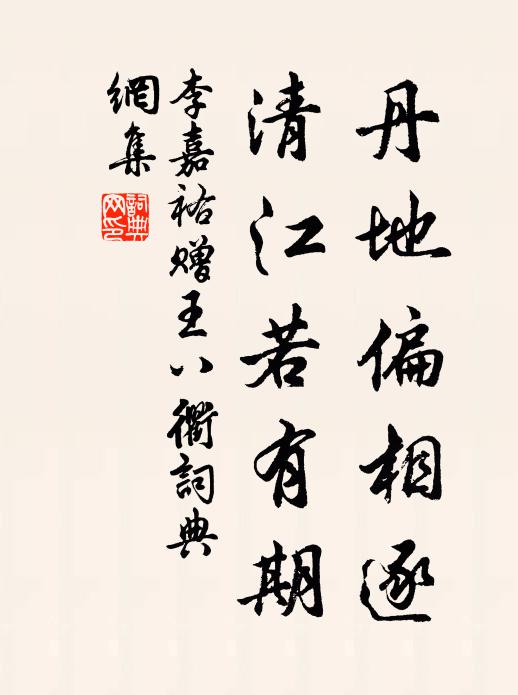 丹地偏相逐
清江若有期
李嘉祐赠王八衢詞典
網集
詞典
网印